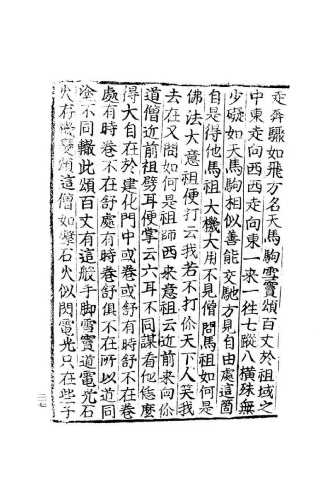 走奔驟如飛方名天馬駒雪竇頌百丈於祖域之
中東走向西西走向東一來一往七縱八橫殊無
少礙如天馬駒相似善能交馳方見自由處這箇
自是得他馬祖大機大用不見僧問馬祖如何是
佛法大意祖便打云我若不打你天下人笑我
去在又問如何是祖師西來意祖云近前來向你
道僧近前祖劈耳便掌云六耳不同謀看他恁麼
得大自在於建化門中或卷或舒有時舒不在卷
處有時卷不在舒處有時卷舒俱不在所以道同
塗不同轍此頌百丈有這般手脚雪竇道電光石
火存機變頌這僧如擊石火似閃電光只在些子